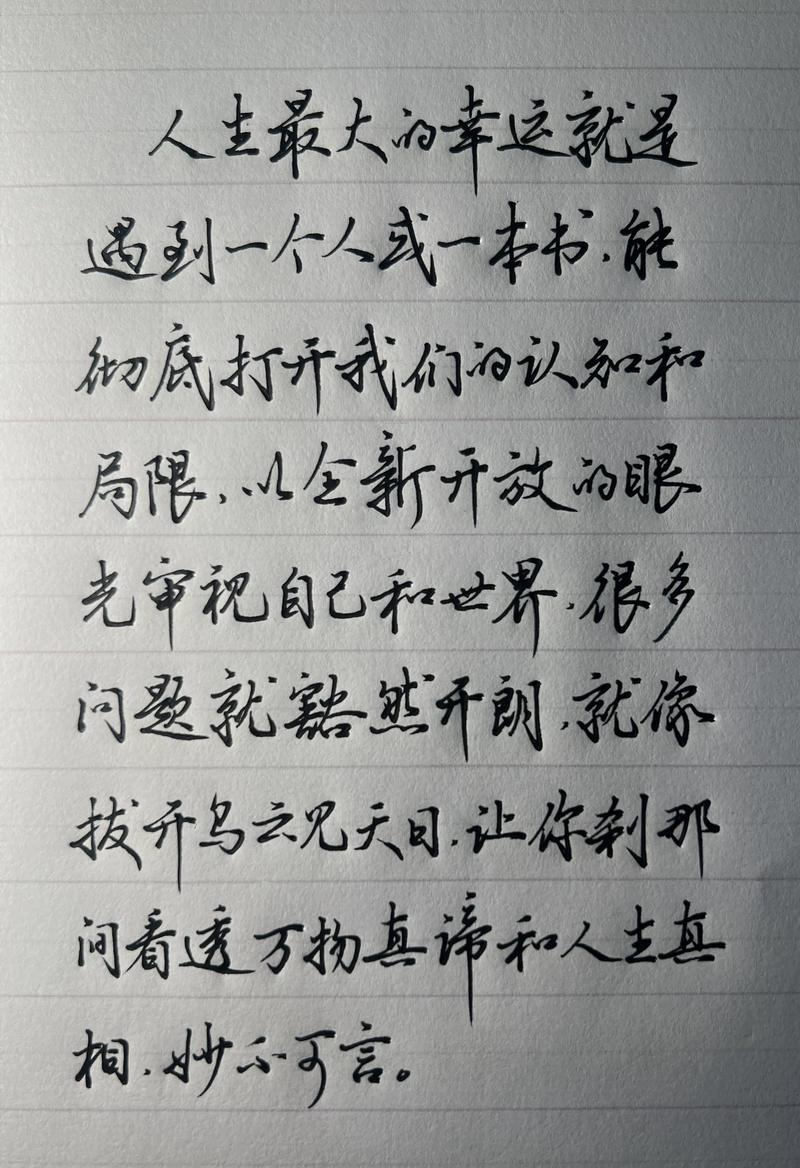 人生最大的幸运就是
遇到一个人或一本书,能
彻底打开我们的认知和
局限,以全新开放的眼
光审视自己和世界,很多
问题就豁然开朗,就像
拔开乌云见天日,让你刹那
间看透万物真谛和人生真
相,妙不可言。